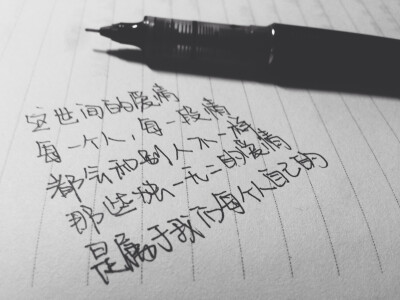 这世间的爱情
每一个人，每一段情
都会和别人不一样
那些独一无二的爱情
是属于我们每个人自己的